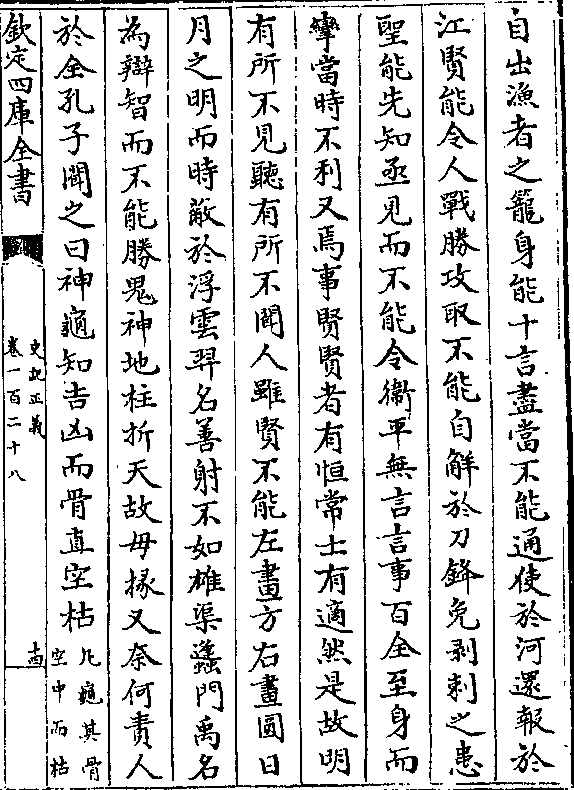 自出漁者之籠身能十言盡當不能通使於河還報於
江賢能令人戰勝攻取不能自解於刀鋒免剥刺之患
聖能先知亟見而不能令衞平無言言事百全至身而
攣當時不利又焉事賢賢者有恒常士有適然是故明
有所不見聽有所不聞人雖賢不能左畫方右畫圓日
月之明而時蔽於浮雲羿名善射不如雄渠蠭門禹名
為辯智而不能勝鬼神地柱折天故毋椽又奈何責人
於全孔子聞之曰神龜知吉凶而骨直空枯
凡龜其骨
空中而枯
欽定四庫全書
史記正義
卷一百二十八
十四